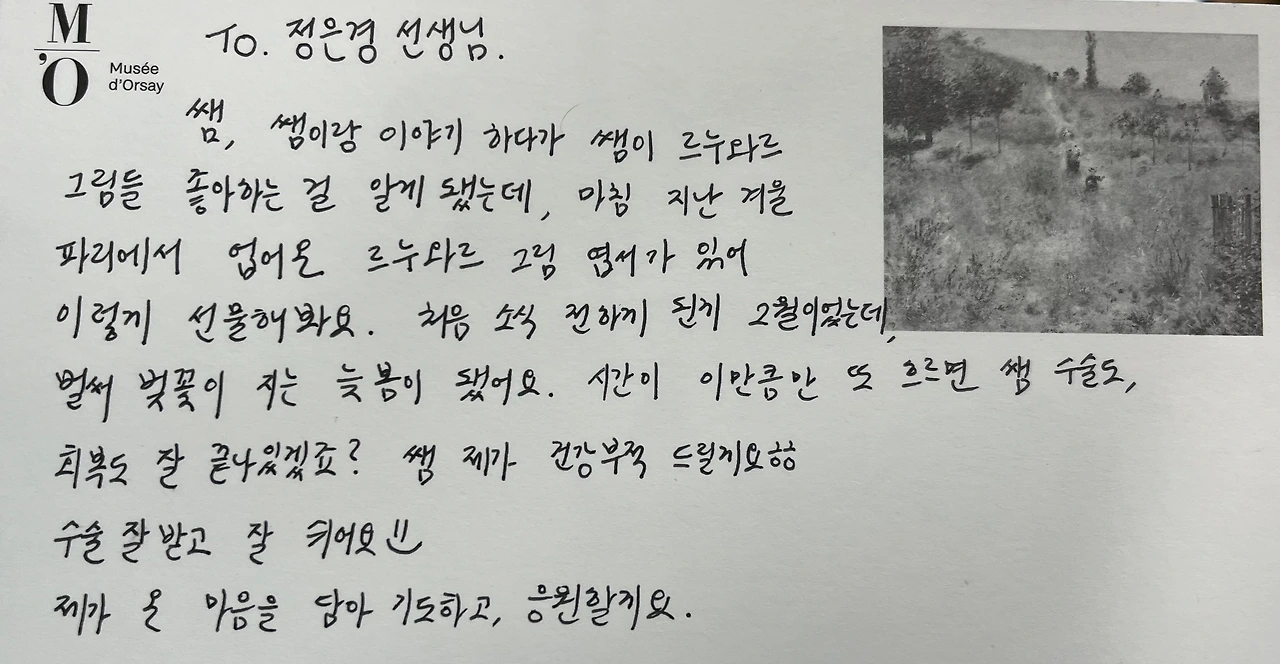 M
'O
Musée
d'Orsay
To. 정은경 선생님.
쌤, 쌤이랑 이야기 하다가 쌤이 르누와르
그림들 좋아하는 걸 알게 됐는데, 마침 지난 겨울
파리에서 업어온 르누와르 그림 엽서가 있어
이렇게 선물해봐요. 처음 소식 전하게 된지 2월이었는데,
벌써 벚꽃이 지는 늦봄이 됐어요. 시간이 이만큼만 또 흐르면 쌤 수술도,
회복도 잘 끝나있겠죠? 쌤 제가 건강부적 드릴게요ㅎㅎ
수술 잘 받고 잘 쉬어요
제가 온 마음을 담아 기도하고, 응원할게요.